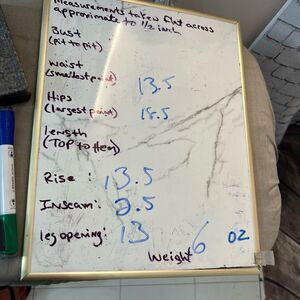 Measurements taken flat across
approximate to 1/2 inch
Bust
(Pit to Pit)
Waist
(smallest point) 13.5
Hips
(largest point) 18.5
Length
(TOP to Hem)
Rise: 13.5
Inseam: 2.5
leg opening: 13
Weight 6 OZ